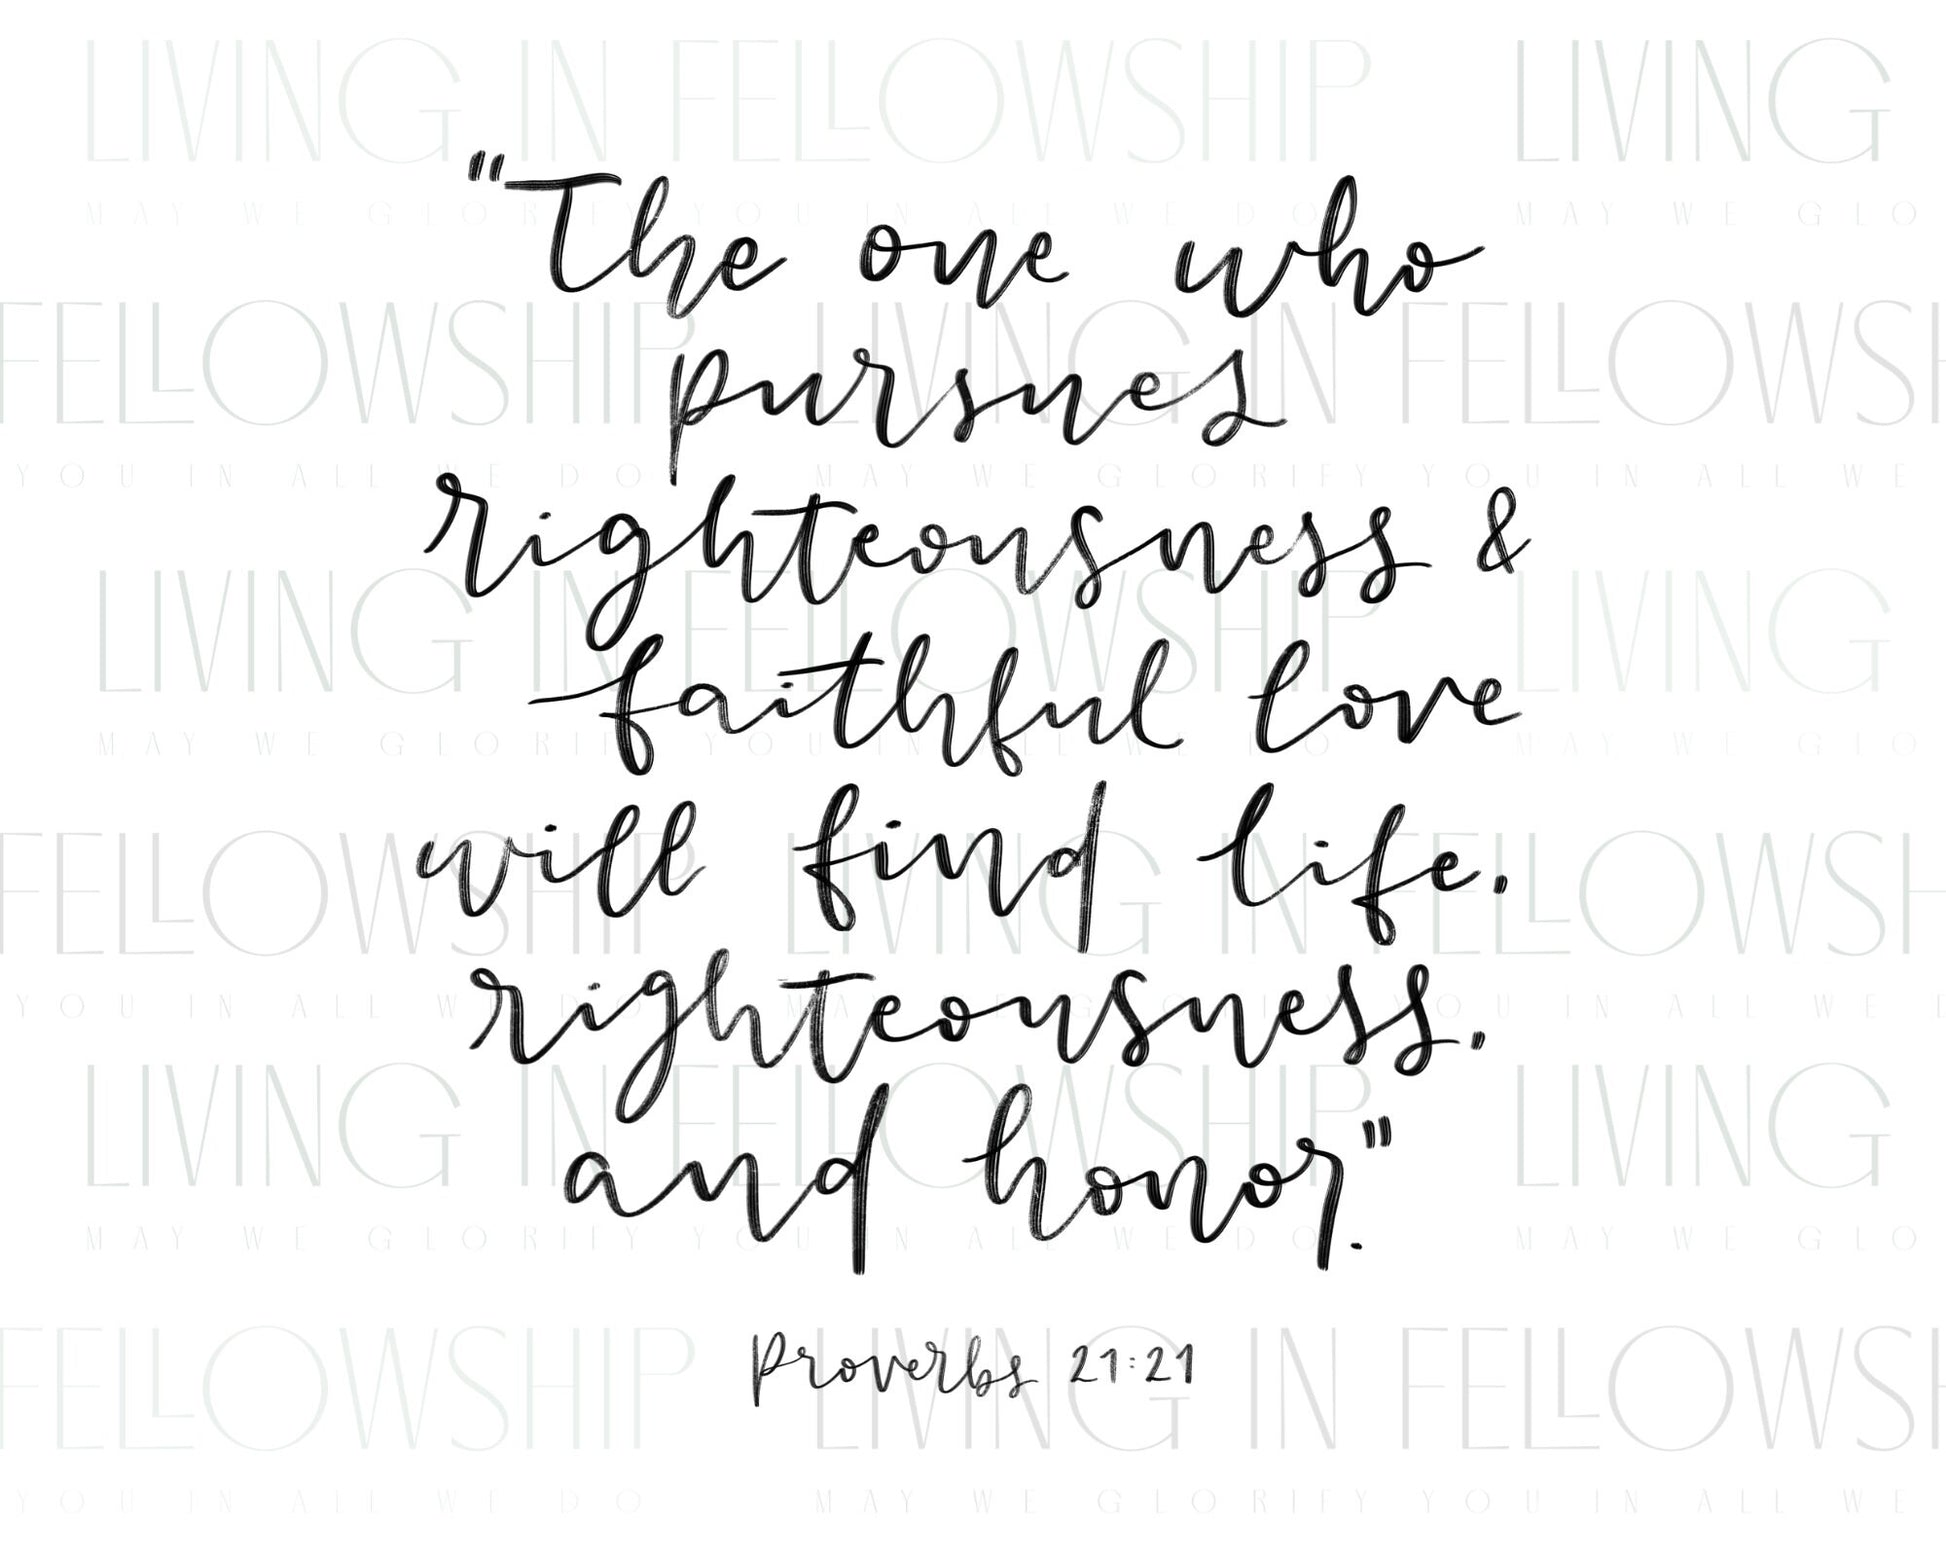 LIVING IN FELLOWSHIP LIVING
MAY WE GLORIFY YOU IN ALL WE DO MAY WE GLO
"The one who
FELLOWSHIP LIVING IN FELLOWSHIP
pursues
YOU IN ALL WE DO MAY WE GLORIFY YOU IN ALL WE
righteousness &
LIVING IN FELLOWSHIP LIVING
faithful love
MAY WE GLORIFY YOU IN ALL WE DO MAY WE GLO
will find life,
FELLOWSHIP LIVING IN FELLOWSHIP
righteousness,
YOU IN ALL WE DO MAY WE GLORIFY YOU IN ALL WE
LIVING IN FELLOWSHIP LIVING
and honor."
MAY WE GLORIFY YOU IN ALL WE DO MAY WE GLO
Proverbs 21:21
FELLOWSHIP LIVING IN FELLOWSHIP
YOU IN ALL WE DO MAY WE GLORIFY YOU IN ALL WE